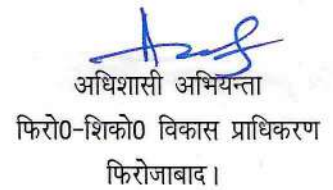 अधिशासी अभियन्ता
फिरो0-शिको0 विकास प्राधिकरण
फिरोजाबाद।